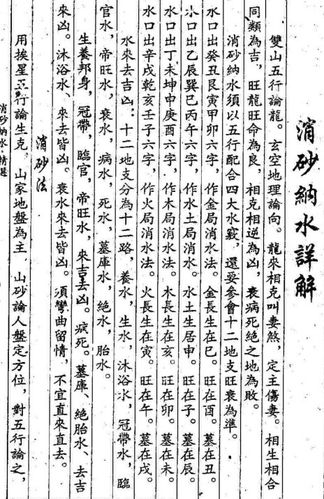 消砂納水詳解
雙山五行論龍。玄空地理論向。龍來相克叫妻煞，定主傷妻。相生相合
同類為吉，旺龍旺命為良，相克相逆為凶，衰病死絕之地為敗。
消砂納水須以五行配合四大水竅，還要參會十二地支旺衰為準。
水口出癸丑艮寅甲卯六字，作金局消水法。金長生在巳。旺在酉。墓在丑。
水口出乙辰巽巳丙午六字，作水土局消水法。水土生居申。旺在子。墓在辰。
水口出丁未坤申庚酉六字，作木局消水法。木長生在亥。旺在卯。墓在未。
水口出辛戌乾亥壬子六字，作火局消水法。火長生在寅。旺在午。墓在戌。
水來去吉凶：十二地支分為十二路，養水，生水，沐浴水，冠帶水，臨
官水，帝旺水，衰水，病水，死水，墓庫水，絕水，胎水。
生養邦身，冠帶，臨官，帝旺水，來吉去凶。病死。墓庫、絕胎水、去吉
來凶。沐浴水、來去皆凶。衰水來去皆凶。須彎曲留情，不宜直來直去。
消砂法
用挨星五行論生克。山家地盤為主，山砂論人盤定方位，對五行論之，
消砂納水·精題